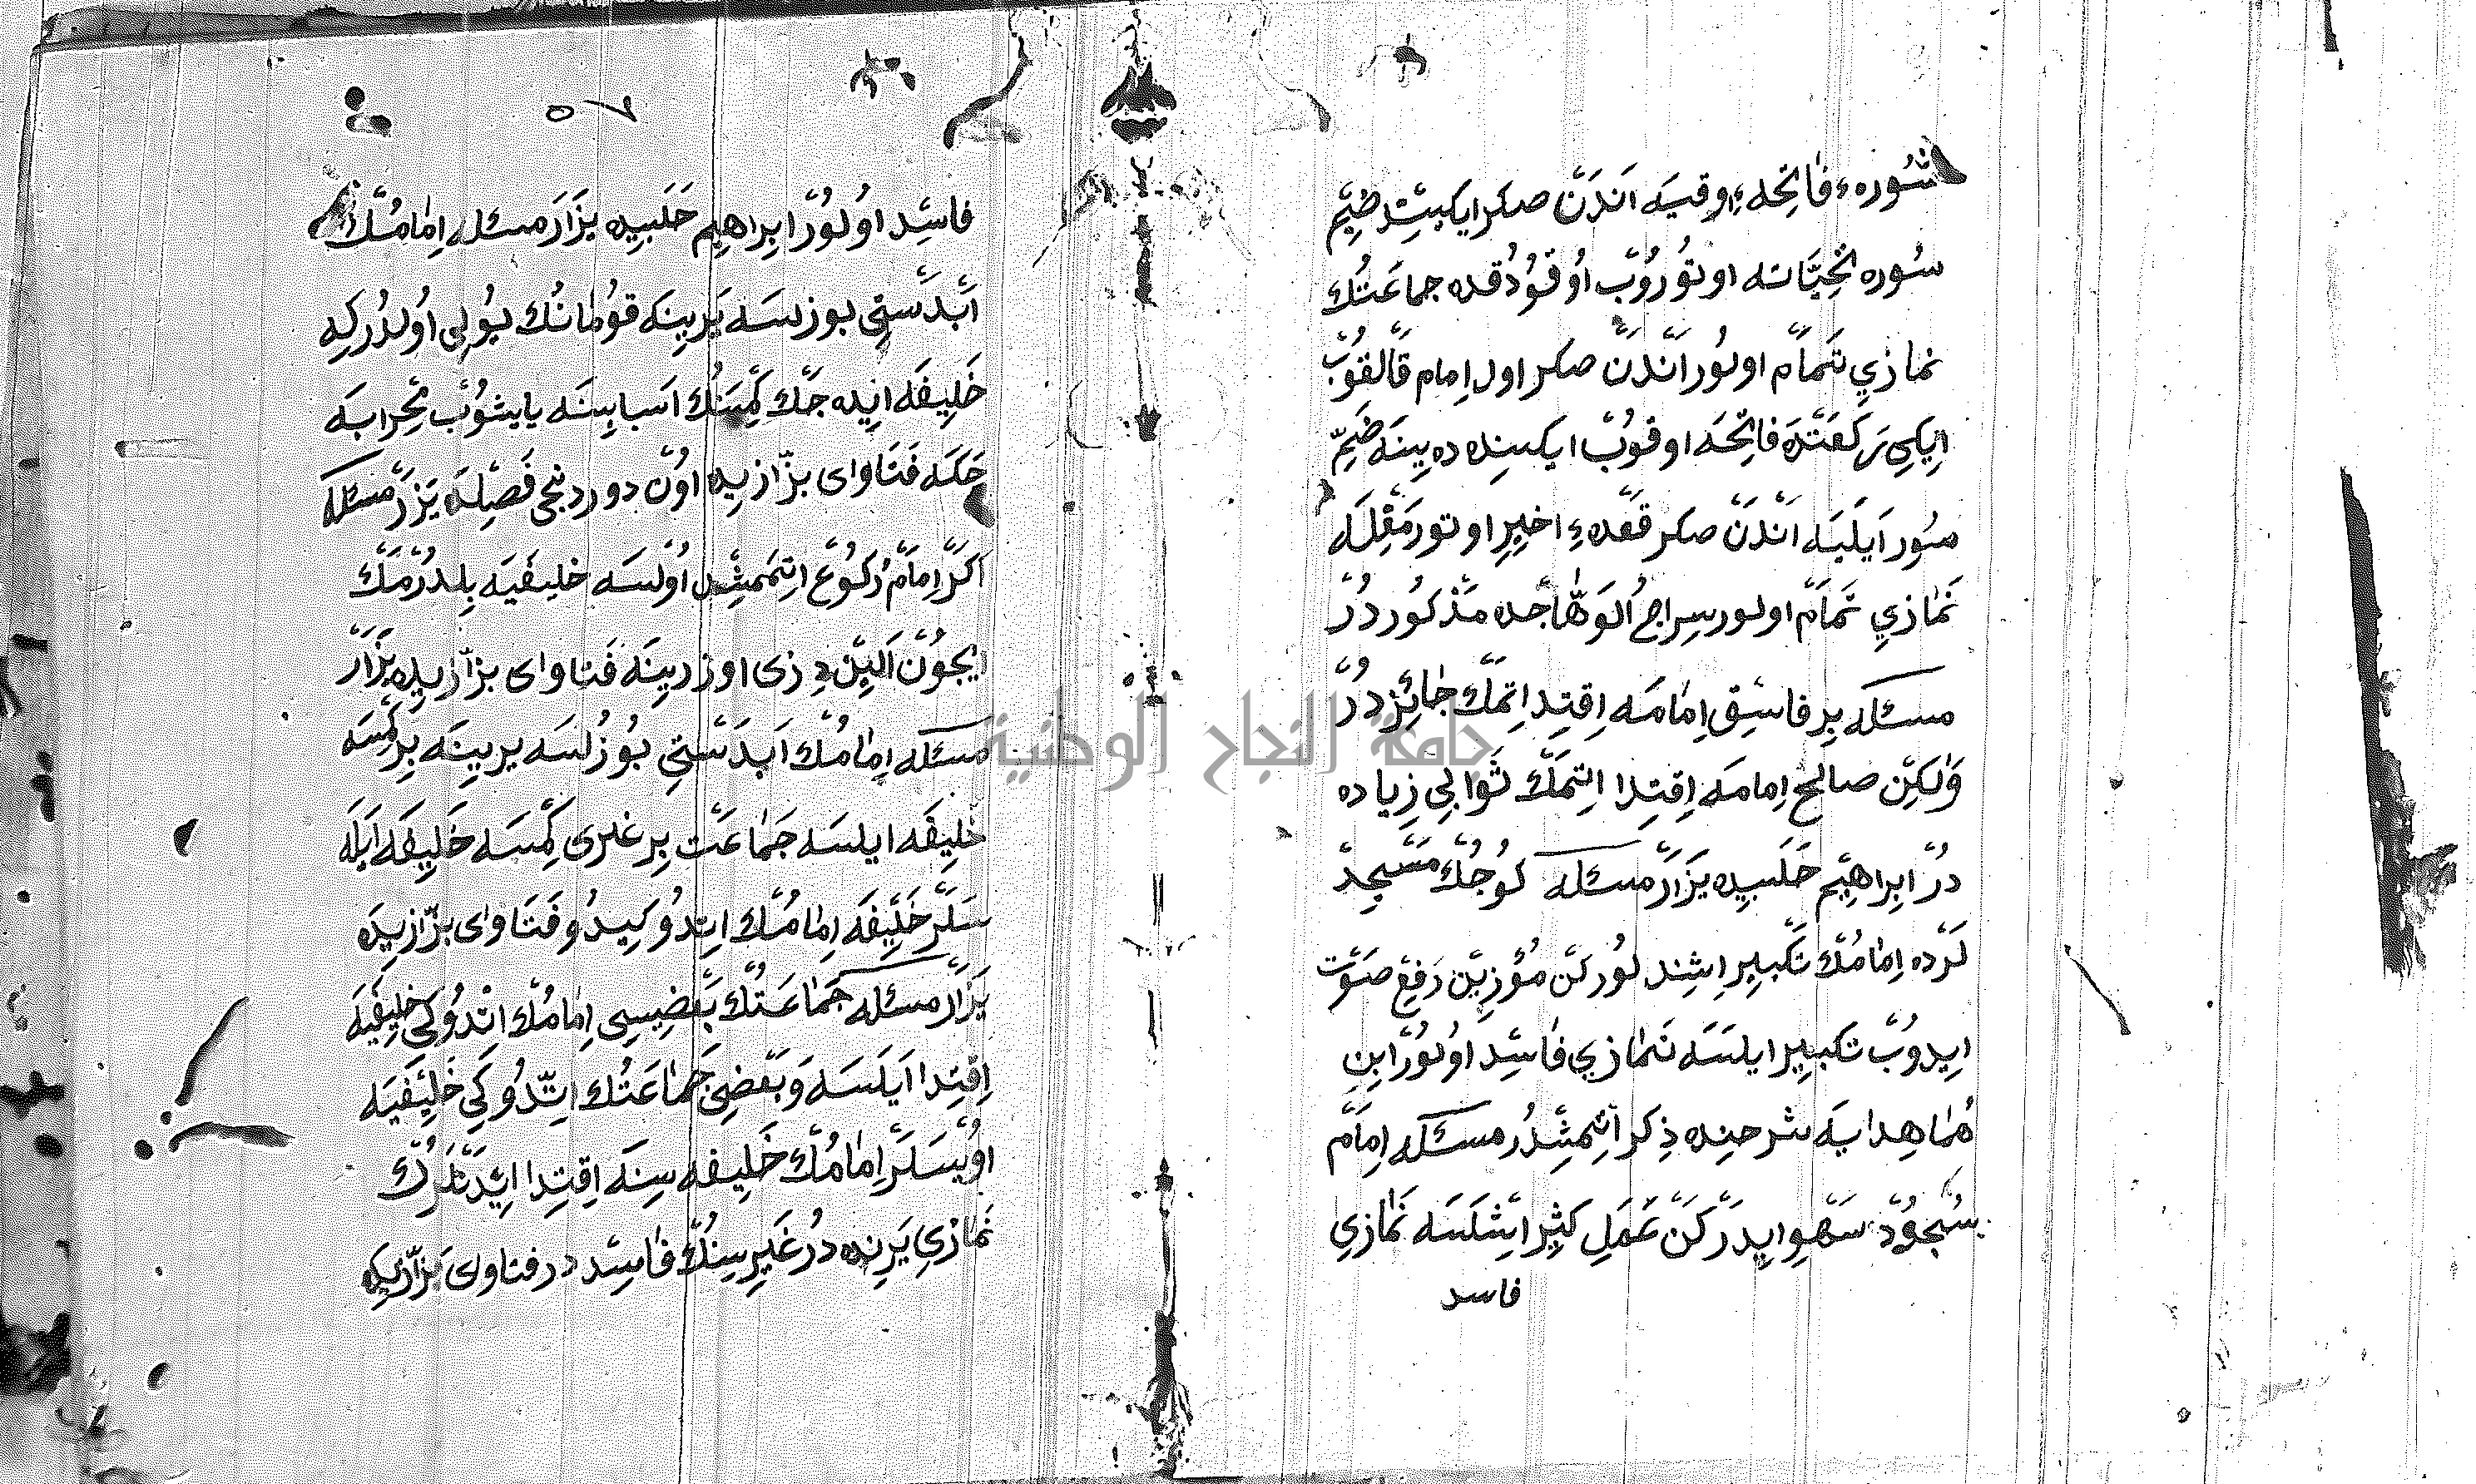 سُوره ء فاتِحه ءِ اوقيَه اَندَنْ صكر ايكيسِنده ضَمِّ
سُوره تَحِيَّاته اوتوُرُوبْ اوُقوُدُقده جماعَتُكْ
نمازي تَمامْ اولوُر اَندَنْ صكر اول اِمام قالقوُبْ
ايكي رَكعَتْدَه فاتِحَه اوقوُبْ ايكسِنده ده يينَه ضَمِّ
سوُر اَيلَيَه اَندَنْ صكر قَعْده ءِ اخيرِ اوتورمَغْلَه
نَمازي تَمامْ اولور سِراجُ الوَهّاجده مَذْكوُر دُرْ
مسئله بِر فاسِق اِمامَه اِقتِدا اِتمَكْ جائِز دُرْ
وَلكِنْ صالح اِمامَه اِقتِدا اِتمَكْ ثَوابي زِياده
دُرْ ابراهيم حَلَبيده يَزارْ مسئله كوُجُكْ مَسْجِدْ
لَرْده اِمامُكْ تَكبير اِشِند لوُركَنْ مؤذِينْ رَفِعْ صَوْت
ايدوُبْ تكبير ايلسَه نَمازي فاسِد اوُلوُرْ ابن
هُمام هدايَه شرحِنده ذِكر اِتمِشدُر مسئله اِمامْ
سُجوُدْ سَهو ايدَركَنْ عَمَلِ كثير اِشلسَه نَمازي
فاسد
٥٧
فاسِد اوُلوُرْ ابراهيم حَلَبيده يَزارْ مسئله اِمامُكْ
اَبْدَسْتي بوزلسَه يَرينَه قوُمانُك يوُلي اوُلدُر كِه
خَليفَه ايده جَكْ كِمْسَنُكْ اَسبابِنَه يابشوُبْ مِحْرابَه
چَكَه فَتاواى بزّازيده اوُنْ دوردنجى فَصِلدَه يَزَرْ مسئله
اَكَرْ اِمامْ رُكوُعْ اِتمَمِشْ اوُلسَه خليفَيَه بِلدُرْمَكْ
ايچوُنْ اَلينْ دِزى اوزرينَه فتاواى بزّازيده يَزارْ
مسئله اِمامُكْ اَبدَسْتي بوُزُلسَه يرينَه بِر كِمْسَه
خَليفَه ايلسَه جَماعَتْ بِر غيرى كِمْسَه خَليفَه اَيلَه
سَلَرْ خَليفَه اِمامُكْ اِتدُوكيدُو فَتَاواى بزّازيدَه
يَزارْ مسئله جَماعَتُكْ بَعْضِيسى اِمامُكْ اِتْدُوكى خليفَيَه
اِقتِدا اَيلسَه وَبَعْضِى جَماعَتُك اِتّدُوكى خَليفَيَه
اوُيسَلَرْ اِمامُكْ خَليفه سِنَه اِقتِدا ايدَنْلَرُكْ
نَمازي يَرنده دُر غَيرِسِنُكْ فاسِد در فتاواى بزّازيده